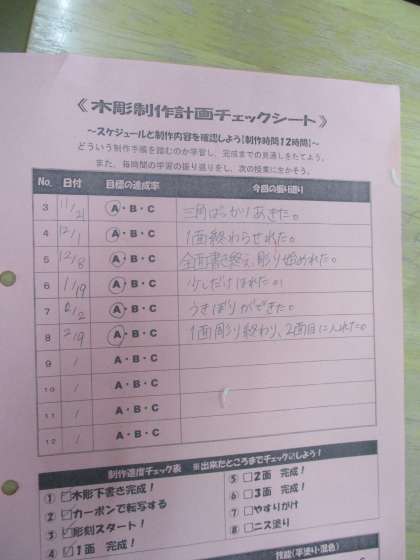 《木彫制作計画チェックシート》
～スケジュールと制作内容を確認しよう【制作時間12時間】～
どういう制作手順を踏むのか学習し、完成までの見通しをたてよう。
また、毎時間の学習の振り返りをし、次の授業に生かそう。
No. 日付 目標の達成率 今回の振り返り
3 11/21 A・B・C 三角ばっかりあきた。
4 12/1 A・B・C 1面終わらせれた。
5 12/8 A・B・C 全面書き終え、彫り始めれた。
6 1/19 A・B・C 少しだけほれた。
7 2/2 A・B・C うきぼりができた。
8 2/9 A・B・C 1面彫り終わり、2面目に入れた。
9 / A・B・C
10 / A・B・C
11 / A・B・C
12 / A・B・C
制作進度チェック表 ※出来たところまでチェック☑しよう！
① ☑木彫下書き完成！
② ☑カーボンで転写する
③ ☑彫刻スタート！
④ ☑1面 完成！
⑤ □2面 完成！
⑥ □3面 完成！
⑦ □やすりがけ
⑧ □ニス塗り
技能（平塗り・混色）